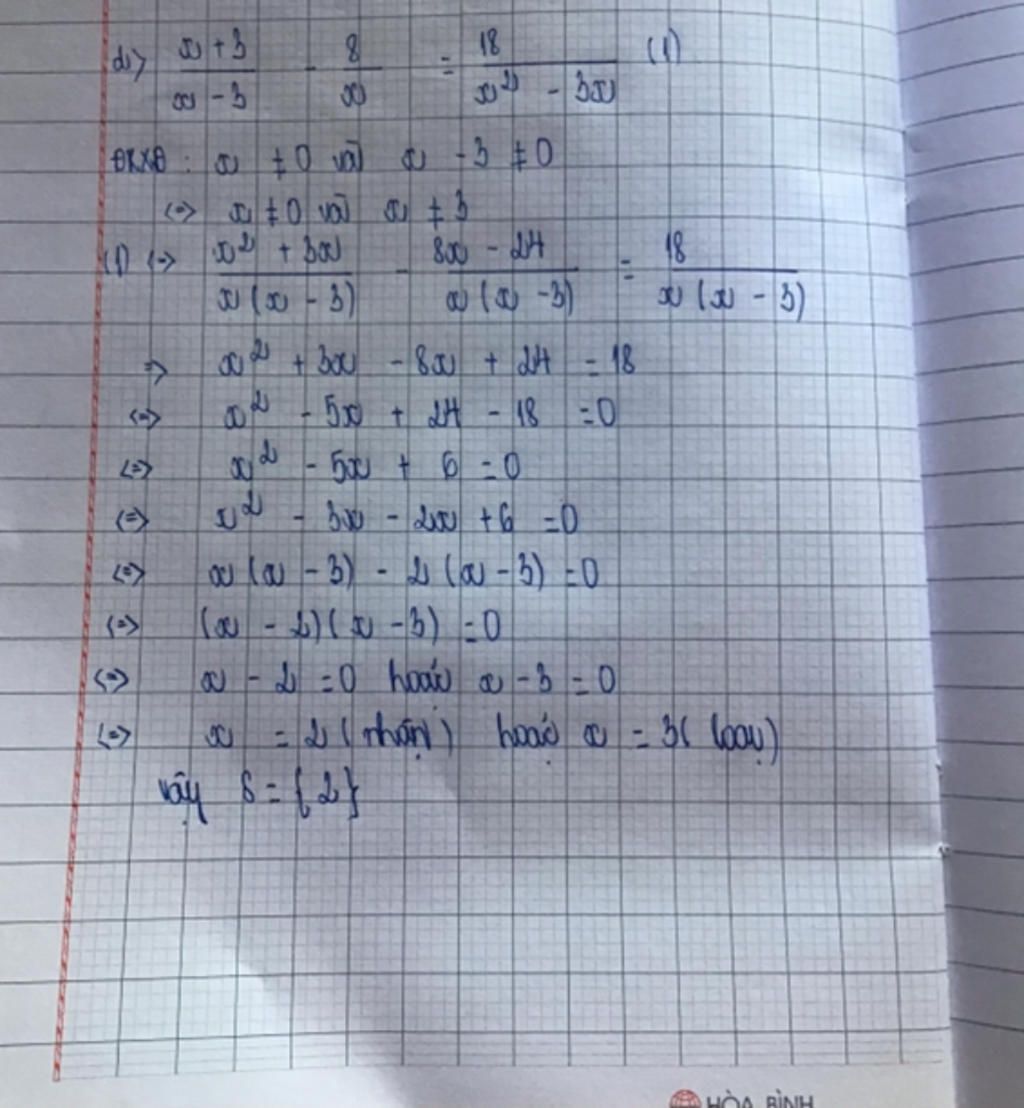 d) \frac{x + 3}{x - 3} - \frac{8}{x} = \frac{18}{x^2 - 3x} (1)
ĐKXĐ : x ≠ 0 và x - 3 ≠ 0
<=> x ≠ 0 và x ≠ 3
(1) <=> \frac{x^2 + 3x}{x(x - 3)} - \frac{8x - 24}{x(x - 3)} = \frac{18}{x(x - 3)}
=> x^2 + 3x - 8x + 24 = 18
<=> x^2 - 5x + 24 - 18 = 0
<=> x^2 - 5x + 6 = 0
<=> x^2 - 3x - 2x + 6 = 0
<=> x(x - 3) - 2(x - 3) = 0
<=> (x - 2)(x - 3) = 0
<=> x - 2 = 0 hoặc x - 3 = 0
<=> x = 2 (nhận) hoặc x = 3 (loại)
Vậy S = {2}
HÒA BÌNH